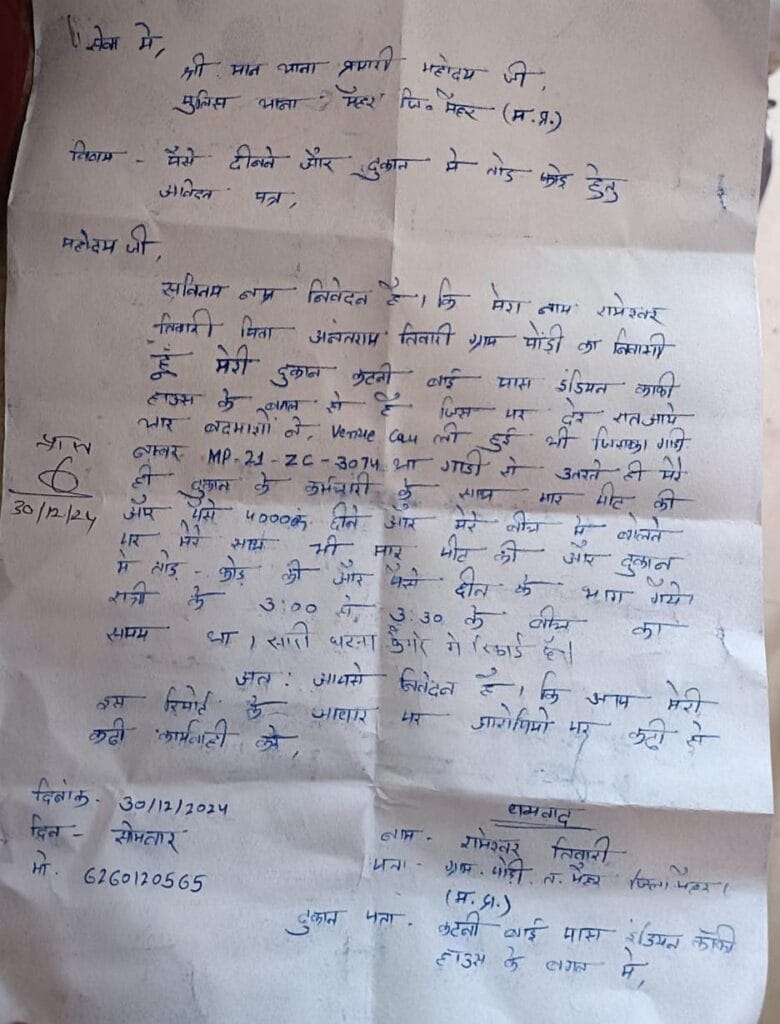 सेवा में,
श्री मान थाना प्रभारी महोदय जी,
पुलिस थाना : मैहर जि॰ मैहर (म.प्र.)
विषय - पैसे छीनने और दुकान मे तोड़ फोड़ हेतु
आवेदन पत्र,
महोदय जी,
सविनय नम्र निवेदन है। कि मेरा नाम रामेश्वर
तिवारी पिता अनंतराम तिवारी ग्राम पोंड़ी का निवासी
हूँ मेरी दुकान कटनी बाई पास इंडियन काफी
हाउस के बगल से है जिस पर देर रात आये
चार बदमाशों ने, Venue Car ली हुई थी जिसका गाडी
नम्बर MP-21-ZC-3074 था गाडी से उतरते ही मेरे
ही दुकान के कर्मचारी के साथ मार पीट की
और पैसे 4000रू छीने और मेरे बीच मे बोलने
पर मेरे साथ भी मार पीट की और दुकान
मे तोड़ - फोड़ की और पैसे छीन के भाग गये।
रात्री के 3:00 से 3:30 के बीच का
समय था। सारी घटना कैमरे मे रिकार्ड है।
अत: आपसे निवेदन है। कि आप मेरी
इस रिपोर्ट के आधार पर आरोपियो पर कड़ी से
कड़ी कार्यवाही करे,
प्राप्त
30/12/24
दिनांक - 30/12/2024
दिन - सोमवार
मो. 6260120565
धन्यवाद
नाम - रामेश्वर तिवारी
पता - ग्राम. पोंड़ी. त. मैहर जिला मैहर।
(म.प्र.)
दुकान पता - कटनी बाई पास इंडियन कॉफी
हाउस के बगल मे,